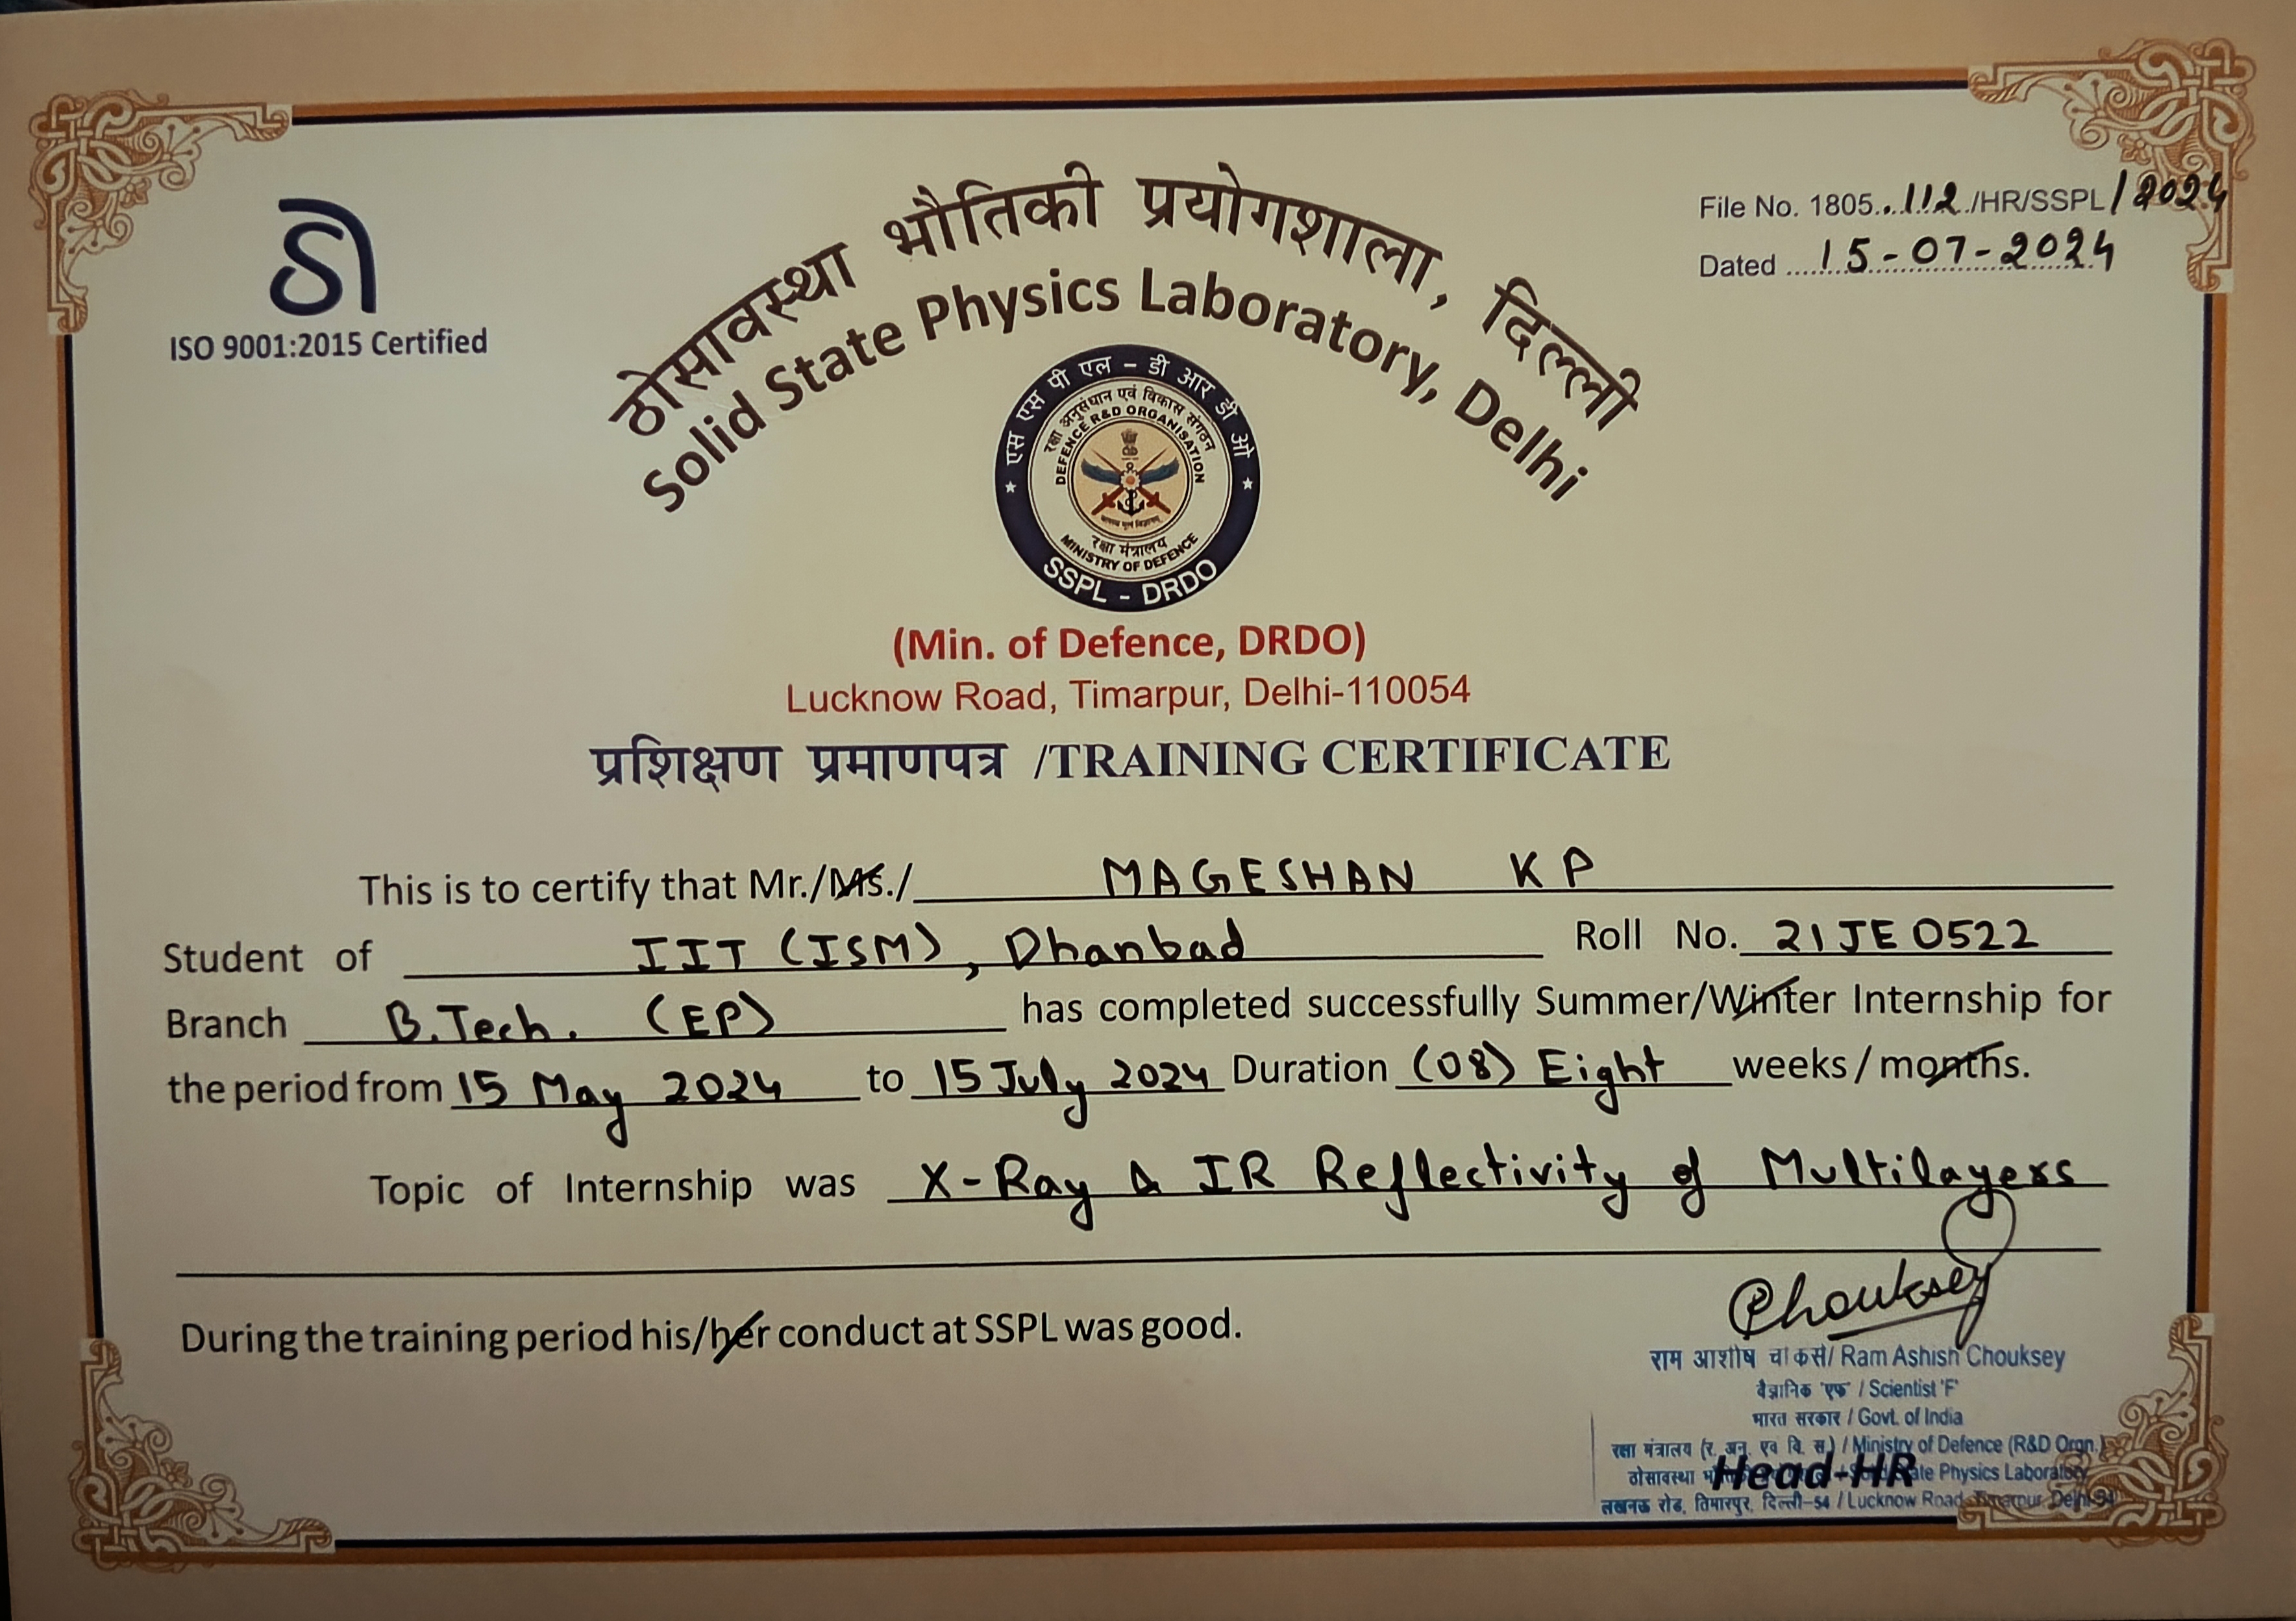 ठी
ISO 9001:2015 Certified
File No. 1805..112./HR/SSPL/2024
Dated ......15-07-2024
ठोसावस्था भौतिकी प्रयोगशाला, दिल्ली
Solid State Physics Laboratory, Delhi
एस एस पी एल – डी आर डी ओ
रक्षा अनुसंधान एवं विकास संगठन
DEFENCE R&D ORGANISATION
रक्षा मंत्रालय
MINISTRY OF DEFENCE
SSPL - DRDO
(Min. of Defence, DRDO)
Lucknow Road, Timarpur, Delhi-110054
प्रशिक्षण प्रमाणपत्र /TRAINING CERTIFICATE
This is to certify that Mr./Ms./ MAGESHAN KP
Student of IIT (ISM), Dhanbad Roll No. 21JE0522
Branch B.Tech. (EP) has completed successfully Summer/Winter Internship for
the period from 15 May 2024 to 15 July 2024 Duration (08) Eight weeks / months.
Topic of Internship was X-Ray & IR Reflectivity of Multilayers
During the training period his/her conduct at SSPL was good.
Chouksey
राम आशीष चौकसे/ Ram Ashish Chouksey
वैज्ञानिक 'एफ' / Scientist 'F'
भारत सरकार / Govt. of India
रक्षा मंत्रालय (र. अनु. एवं वि. स.) / Ministry of Defence (R&D Orgn.)
ठोसावस्था Head-HR State Physics Laboratory
लखनऊ रोड, तिमारपुर, दिल्ली–54 / Lucknow Road, Timarpur, Delhi-54